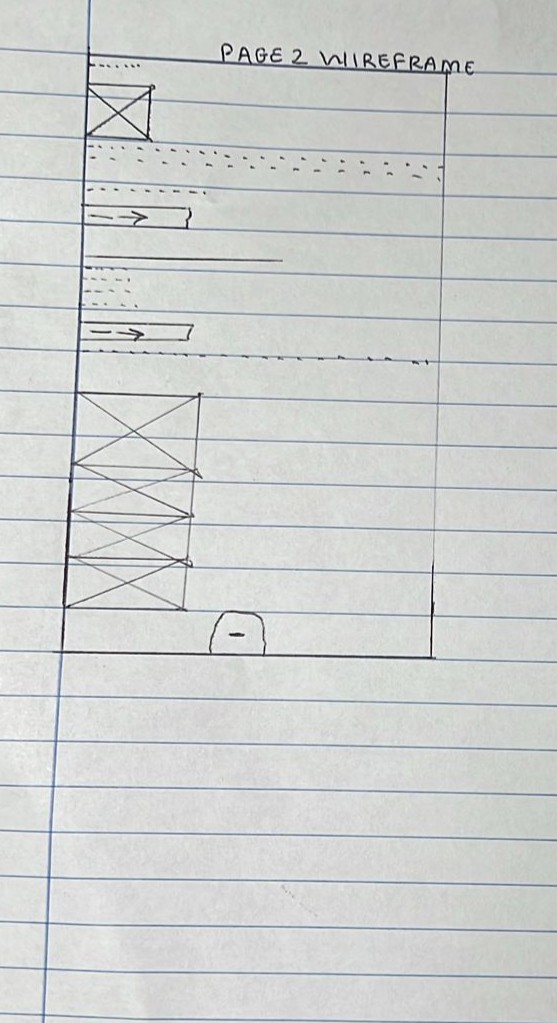 PAGE 2 WIREFRAME